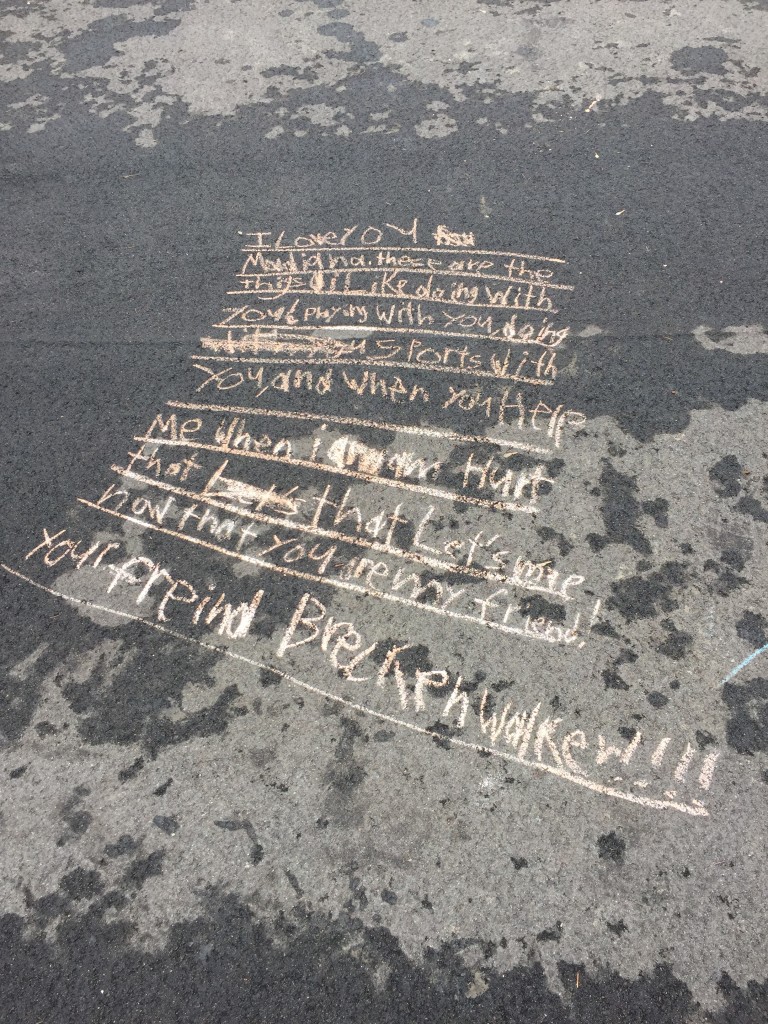 I Love YOU
these are the
thigs i Like doing with
you playing with you, doing
Sports with
you, and when you Help
Me when i am Hurt
that that Let's me
now that you are my friend!
your freind Brecken Walker!!!